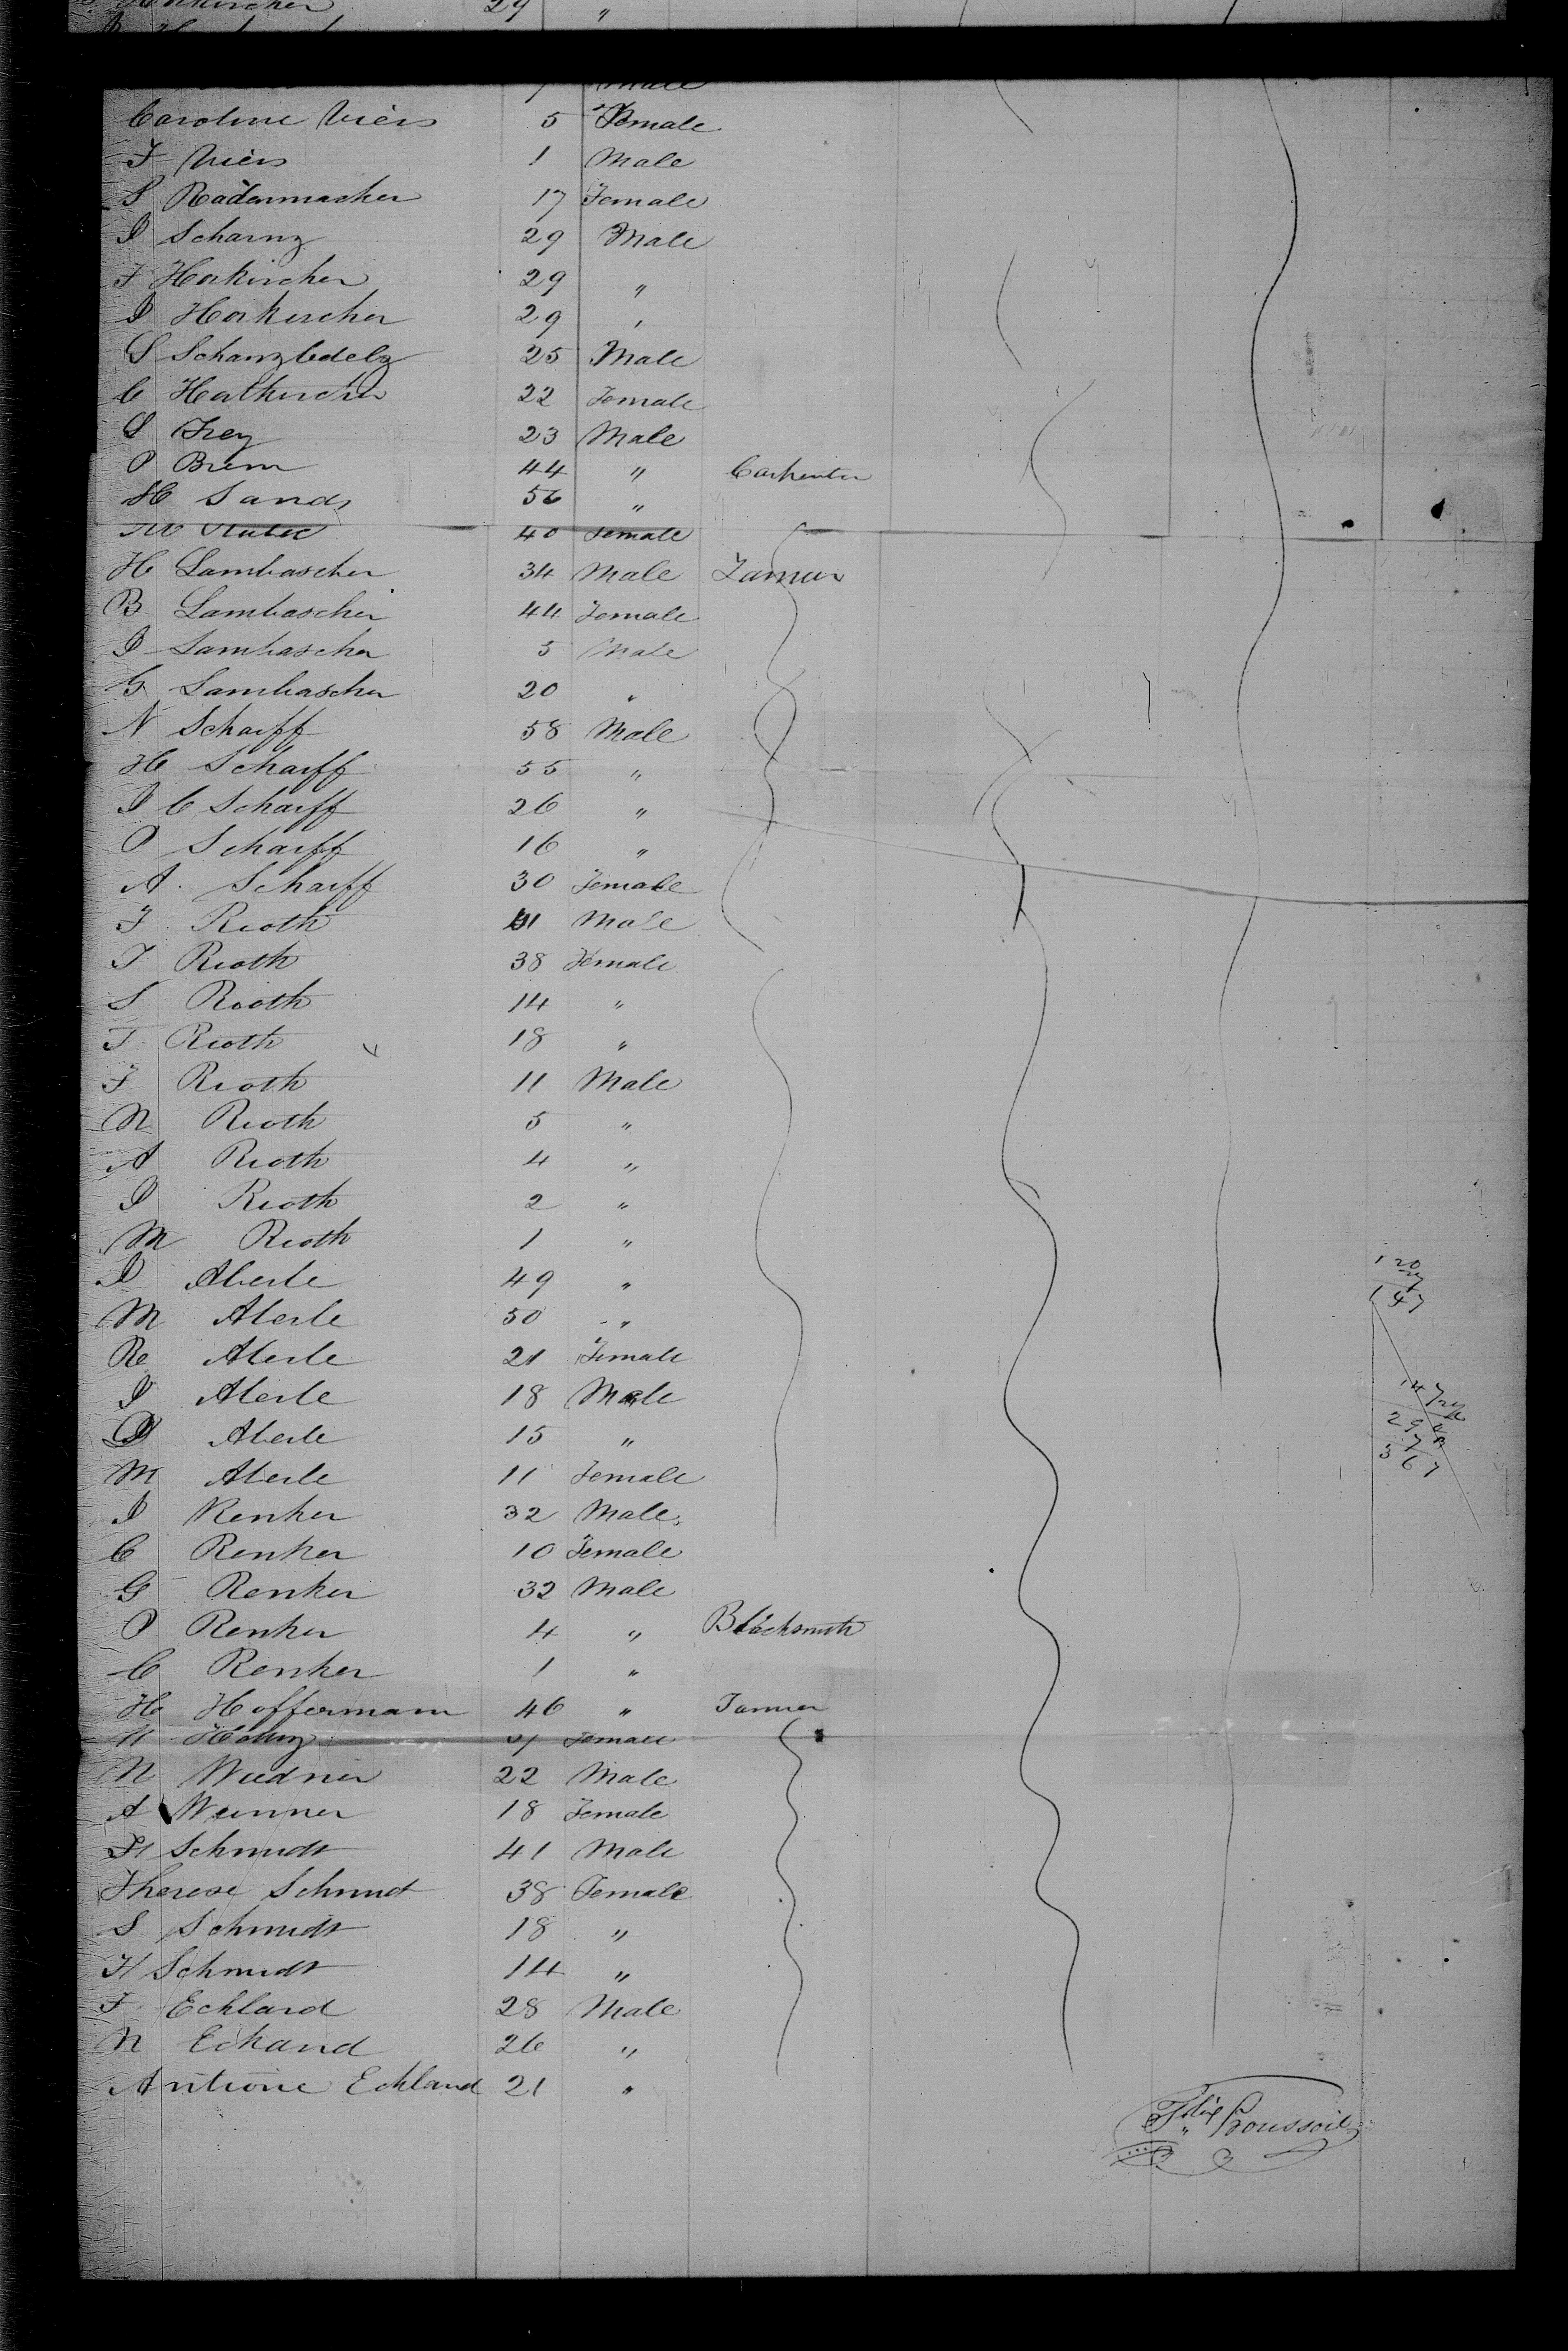 29 "
Male
Caroline Vieis 5 Female
F Vieis 1 Male
S Radermacher 17 Female
I Scharnz 29 Male
F Horkircher 29 "
I Horkircher 29 "
S 25 Male
C Horkircher 22 Female
S Frey 23 Male
P Brem 44 " Carpenter
H Sands 56 "
40 Female
H Lambascher 34 Male
B Lambascher 44 Female
I Lambascher 5 Male
G Lambascher 20 "
N Scharff 58 Male
H Scharff 55 "
I C Scharff 26 "
P Scharff 16 "
A. Scharff 30 Female
F Rioth 41 Male
T Rioth 38 Female
S Rioth 14 "
T Rioth 18 "
F Rioth 11 Male
N Rioth 5 "
A Rioth 4 "
I Rioth 2 "
M Rioth 1 "
I Aberle 49 "
M Aberle 50 "
Re Aberle 21 Female
I Aberle 18 Male
Aberle 15 "
M Aberle 11 Female
I Renker 32 Male
C Renker 10 Female
G Renker 32 Male
P Renker 4 " Blacksmith
C Renker 1 "
H Hoffermann 46 " Tanner
Female
N Wiedner 22 Male
A Weinner 18 Female
H Schmidt 41 Male
Therese Schmidt 38 Female
S Schmidt 18 "
H Schmidt 14 "
F Eckland 28 Male
N Eckand 26 "
Antione Eckland 21 "
120
147
147
Felix